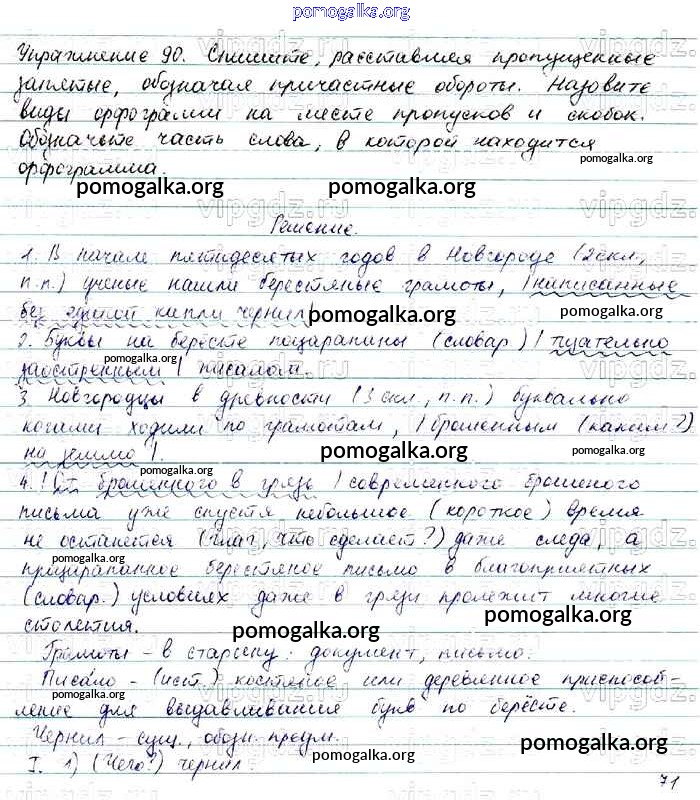 pomogalka.org
Упражнение 90. Спишите, расставляя пропущенные
запятые, обозначая причастные обороты. Назовите
виды орфограмм на месте пропусков и скобок.
Обозначьте часть слова, в которой находится
орфограмма.
pomogalka.org pomogalka.org pomogalka.org
Решение.
1. В начале пятидесятых годов в Новгороде (2 скл.,
п.п.) ученые нашли берестяные грамоты, |написанные
без единой капли чернил|
pomogalka.org pomogalka.org
2. Буквы на бересте поцарапаны (словар.) | тщательно
pomogalka.org
заостренным | писалом.
3. Новгородцы в древности (3 скл., п.п.) буквально
ногами ходили по грамотам, | брошенным (каким?)
на землю |.
pomogalka.org pomogalka.org
4. | От брошенного в грязь | современного брошеного
письма уже спустя небольшое (короткое) время
не останется (глаг., что сделает?) даже следа, а
pomogalka.org
процарапанное берестяное письмо в благоприятных
(словар.) условиях даже в грязи пролежит многие
pomogalka.org
столетия.
pomogalka.org
Грамоты - в старину: документ, письмо.
Писало - (ист.) костяное или деревянное приспособ-
pomogalka.org
ление для выдавливания букв по берёсте.
Чернил - сущ., обозн. предм.
pomogalka.org pomogalka.org
I. 1) (Чего?) чернил.
71
pomogalka.org